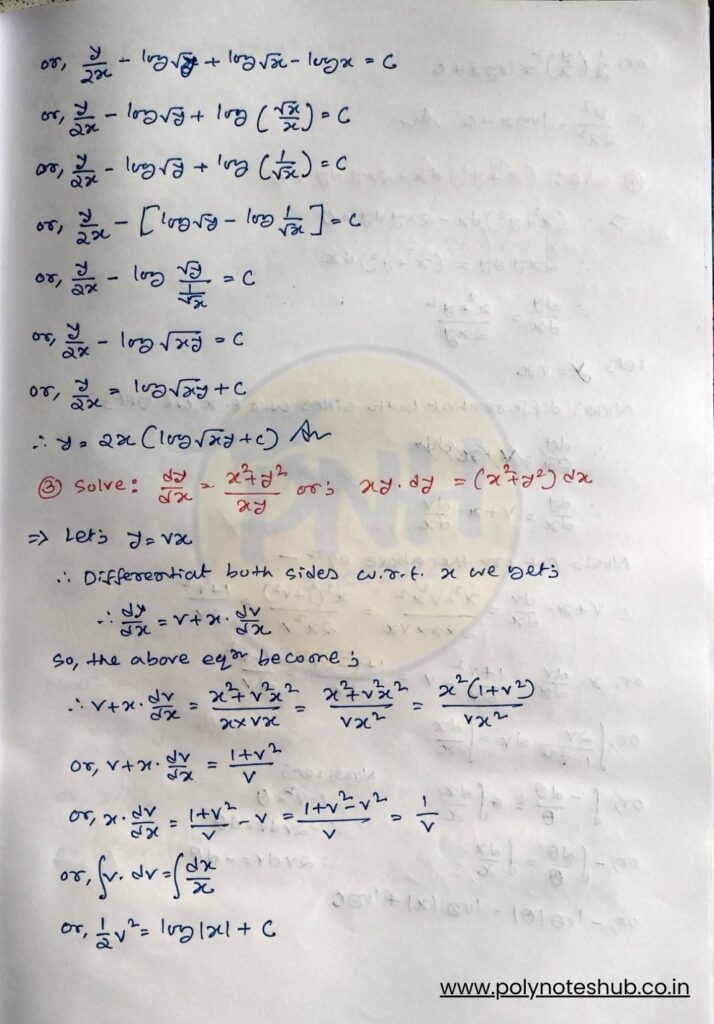 or, y/2x - log√y + log√x - logx = C
or, y/2x - log√y + log (√x/x) = C
or, y/2x - log√y + log (1/√x) = C
or, y/2x - [log√y - log 1/√x] = C
or, y/2x - log √y/(1/√x) = C
or, y/2x - log √xy = C
or, y/2x = log√xy + C
∴ y = 2x (log√xy + c) Ans
③ Solve: dy/dx = (x²+y²)/xy or, xy·dy = (x²+y²) dx
⇒ Let, y = vx
∴ Differential both sides w.r.t. x we get,
∴ dy/dx = v+x·dv/dx
So, the above eqn become,
∴ v+x·dv/dx = (x²+v²x²)/(x×vx) = (x²+v²x²)/vx² = x²(1+v²)/vx²
or, v+x·dv/dx = (1+v²)/v
or, x·dv/dx = (1+v²)/v - v = (1+v²-v²)/v = 1/v
or, ∫v·dv = ∫dx/x
or, 1/2 v² = log|x| + C
PNH
www.polynoteshub.co.in